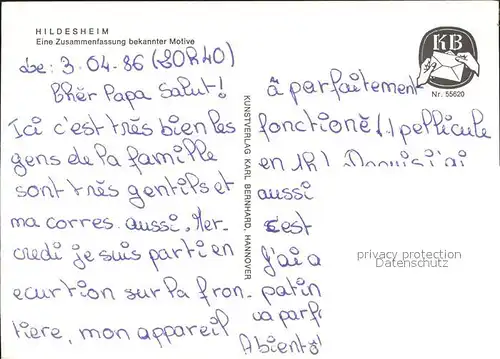 HILDESHEIM
Eine Zusammenfassung bekannter Motive
KB
Nr. 55620
KUNSTVERLAG KARL BERNHARD, HANNOVER
3.04.86 (20R40)
Chèr Papa Salut!
Ici c'est très bien les
gens de la famille
sont très gentils et
ma corres. aussi. Mer-
credi je suis parti en
ecurtion sur la fron-
tiere, mon appareil
à parfaitement
fonctioné (1 pellicule
en 1h). Depuis j'ai
aussi
c'est
j'ai a
patin
va parf
Abientô
privacy protection
Datenschutz